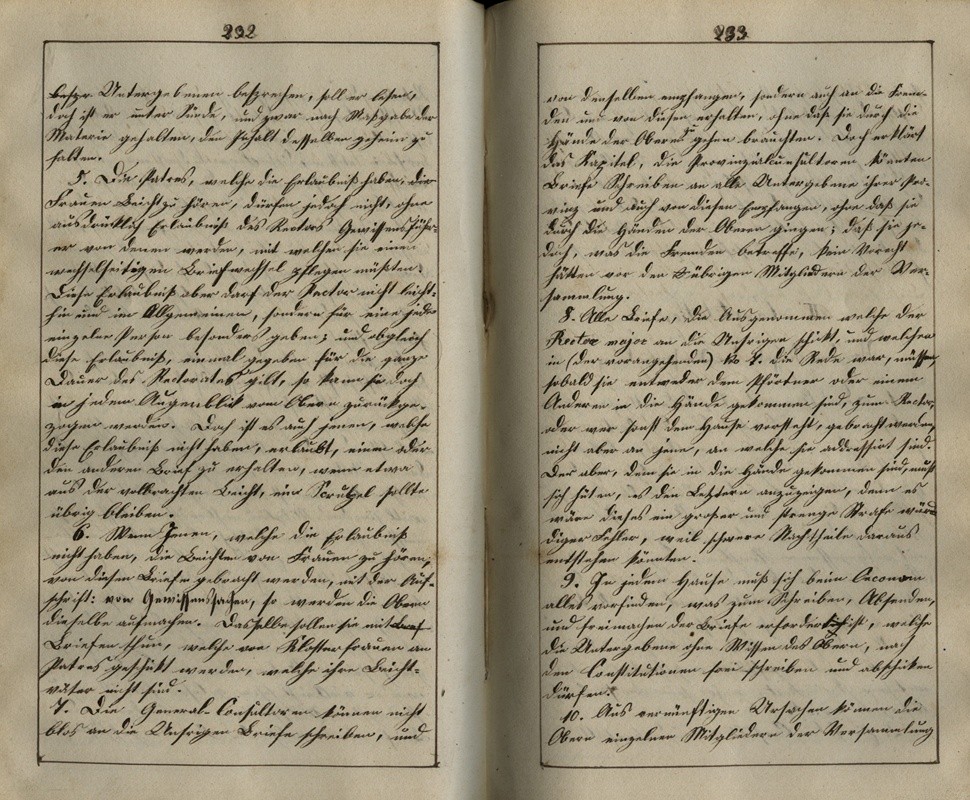 232
Untergebenen besprechen, soll er lesen,
doch ist er unter Sünde, und zwar nach Maßgabe der
Materie gehalten, den Inhalt desselben geheim zu
halten.
5. Die Patres, welche die Erlaubniß haben, die
Frauen Beicht zu hören, dürfen jedoch nicht, ohne
ausdrücklich Erlaubniß des Rectors Gewissensführ-
er von denen werden, mit welchen sie einen
wechselseitigen Briefwechsel pflegen müßten.
Diese Erlaubniß aber darf der Rector nicht leicht-
hin und im Allgemeinen, sondern für eine jede
einzelne Person besonders geben; und obgleich
diese Erlaubniß, einmal gegeben für die ganze
Dauer des Rectorates gilt, so kann sie doch
in jedem Augenblick vom Obern zurückge-
zogen werden. Doch ist es auch jenen, welche
diese Erlaubniß nicht haben, erlaubt, einen oder
den anderen Brief zu erhalten, wenn etwa
aus der vollbrachten Beicht, ein Scrupel sollte
übrig bleiben.
6. Wenn Jenen, welche die Erlaubniß
nicht haben, die Beichten von Frauen zu hören,
von diesen Briefe gebracht werden, mit der Auf-
schrift: von Gewissenssachen, so werden die Obern
dieselbe aufmachen. Dasselbe sollen sie mit
Briefen thun, welche von Klosterfrauen an
Patres geschickt werden, welche ihre Beicht-
väter nicht sind.
7. Die General-Consultoren können nicht
blos an die Unsrigen Briefe schreiben, und
233
von denselben empfangen, sondern auch an die Frem-
den und von diesen erhalten, ohne daß sie durch die
Hände der Oberen zu gehen brauchten. Doch erklärt
das Kapitel, die Provinzialconsultoren könnten
Briefe Schreiben an alle Untergebene ihrer Pro-
vinz und auch von diesen Empfangen, ohne daß sie
durch die Händen der Oberen gingen; daß sie je-
doch, was die Fremden betreffe, kein Vorrecht
hätten vor den übrigen Mitgliedern der Ver-
sammlung.
8. Alle Briefe, die Ausgenommen welche der
Rector major an die Unsrigen schickt, und welchen
in (der vorangehenden) No 7. die Rede war, müssen,
sobald sie entweder dem Pförtner oder einem
Anderen in die Hände gekommen sind, zum Rector,
oder wer sonst dem Hause vorsteht, gebracht werden,
nicht aber an jene, an welche sie addressirt sind.
Der aber, dem sie in die Hände gekommen sind, muß
sich hüten, es den Letztern anzuzeigen, denn es
wäre dieses ein großer und strenge Strafe wür-
diger Fehler, weil schwere Nachtheile daraus
entstehen könnten.
9. In jedem Hause muß sich beim Oeconom
alles vorfinden, was zum Schreiben, Absenden,
und freimachen der Briefe erforderlich ist, welche
die Untergebene ohne Wissen des Obern, nach
den Constitutionen frei schreiben und abschicken
dürfen.
10. Aus vernünftigen Ursachen können die
Obern einzelnen Mitgliedern der Versammlung